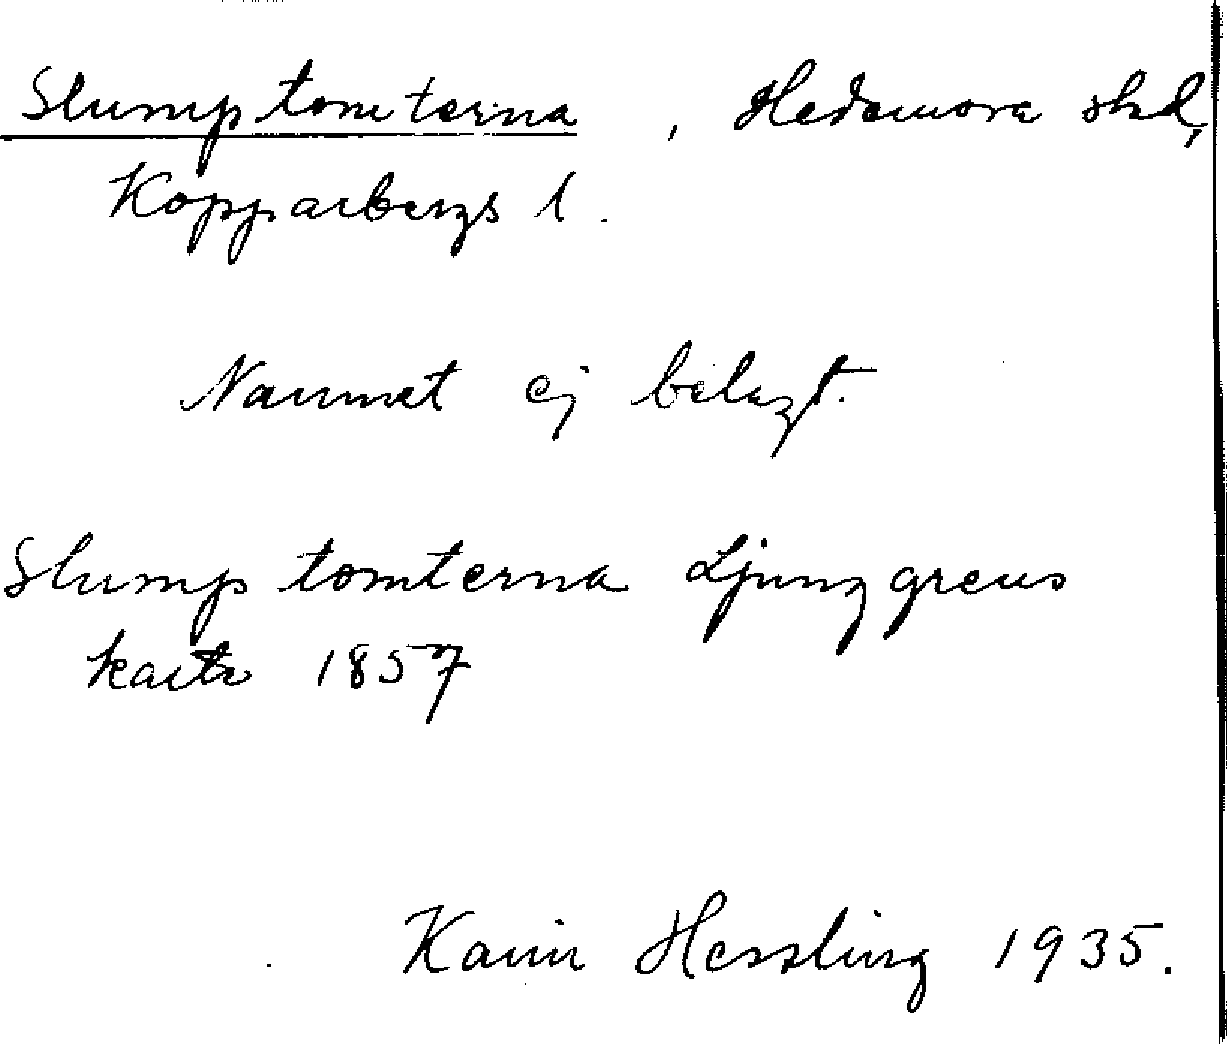 Slumptomterna, Hedemora stad,
Kopparbergs l.
Namnet ej belagt.
Slumptomterna Ljunggrens
karta 1857
Karin Hessling 1935.